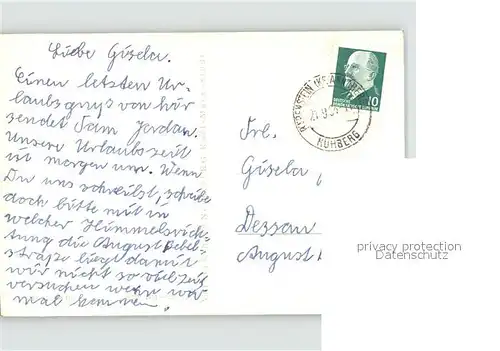 Liebe Gisela.
Einen letzten Ur-
laubsgruß von hier
sendet Fam. Jordan.
Unsere Urlaubszeit
ist morgen um. Wenn
Du uns schreibst, schreibe
doch bitte mit in
welcher Himmelsrich-
tung die August Bebel-
straße liegt damit
wir nicht so viel Zeit
versuchen wenn wir
mal kommen.
10
RUHBERG
Frl.
Gisela
Dessau
August
privacy protection